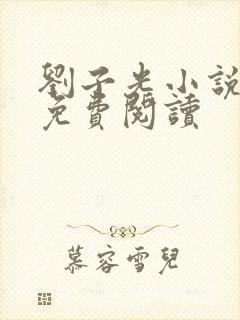 劉子光小說
免費閱讀
慕容雪兒